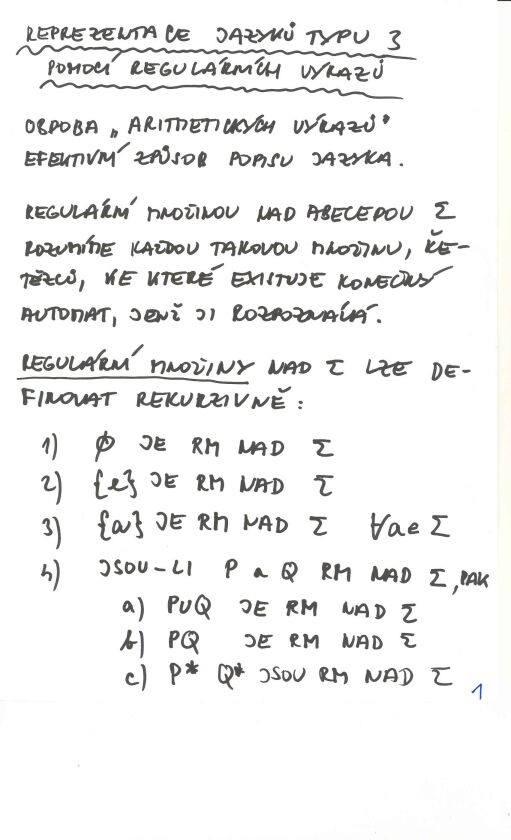 REPREZENTACE JAZYKŮ TYPU 3
POMOCÍ REGULÁRNÍCH VÝRAZŮ
OBDOBA „ARITMETICKÝCH VÝRAZŮ"
EFEKTIVNÍ ZPŮSOB POPISU JAZYKA.
REGULÁRNÍ MNOŽINOU NAD ABECEDOU Σ
ROZUMÍME KAŽDOU TAKOVOU MNOŽINU, ŘE-
TĚZCŮ, KE KTERÉ EXISTUJE KONEČNÝ
AUTOMAT, JENŽ JI ROZPOZNÁVÁ.
REGULÁRNÍ MNOŽINY NAD Σ LZE DE-
FINOVAT REKURZIVNĚ:
1) ∅ JE RM NAD Σ
2) {e} JE RM NAD Σ
3) {a} JE RM NAD Σ ∀a∈Σ
4) JSOU-LI P a Q RM NAD Σ, PAK
a) P∪Q JE RM NAD Σ
b) PQ JE RM NAD Σ
c) P* Q* JSOU RM NAD Σ
1